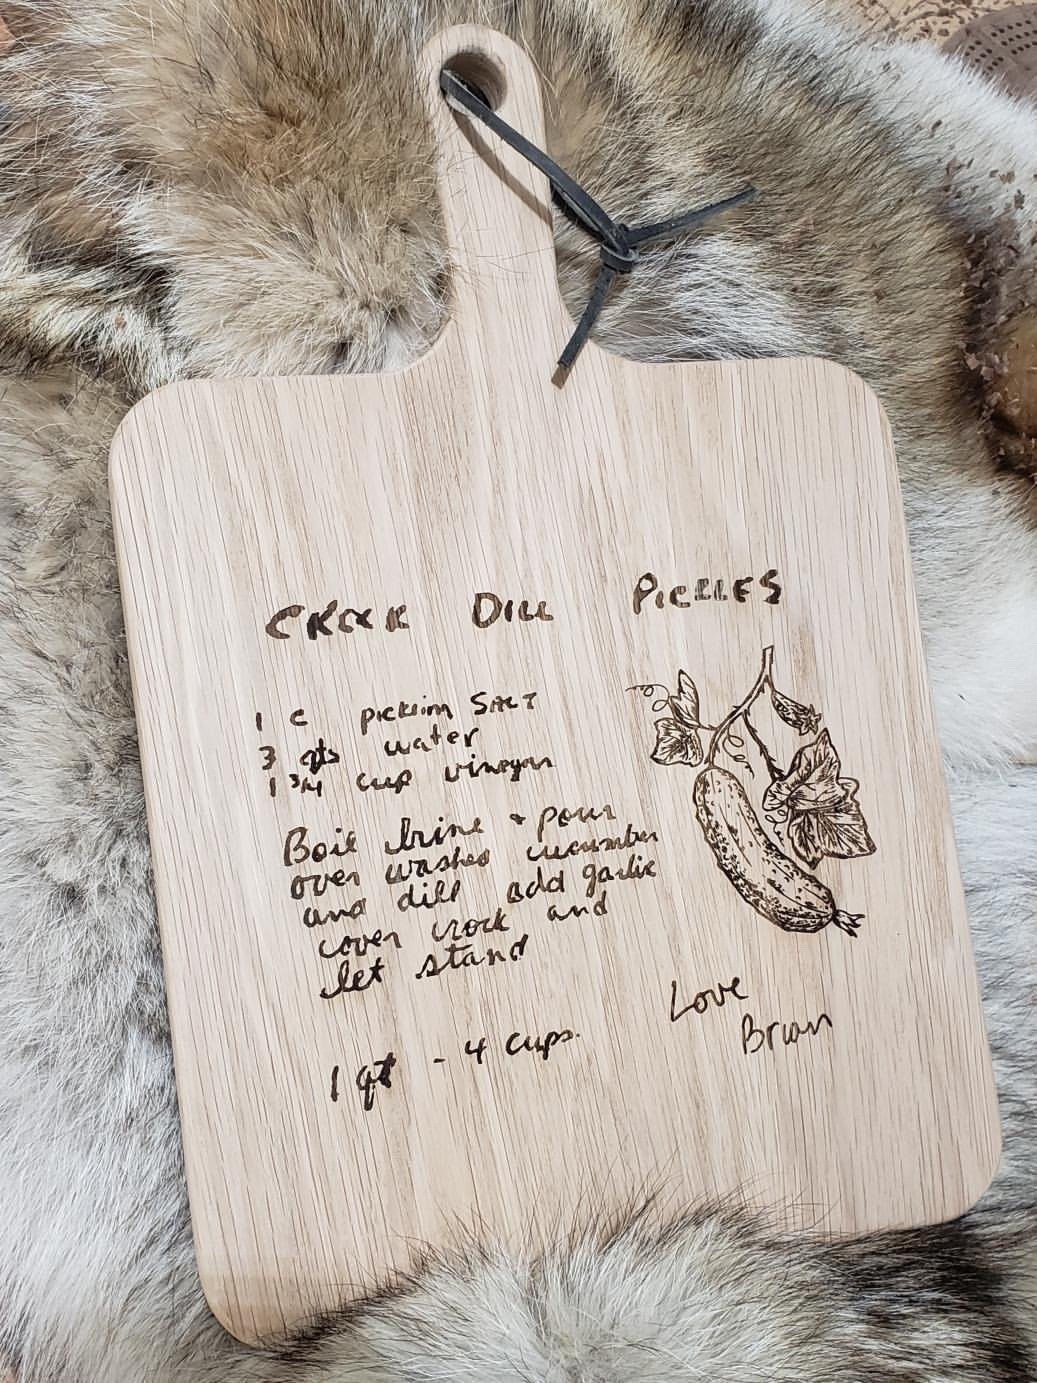 CROCK DILL PICKLES
1 c pickling SALT
3 qts water
1 3/4 cup vinegar
Boil brine + pour
over washed cucumber
and dill add garlic
cover crock and
let stand
1 qt - 4 cups.
Love
Brian